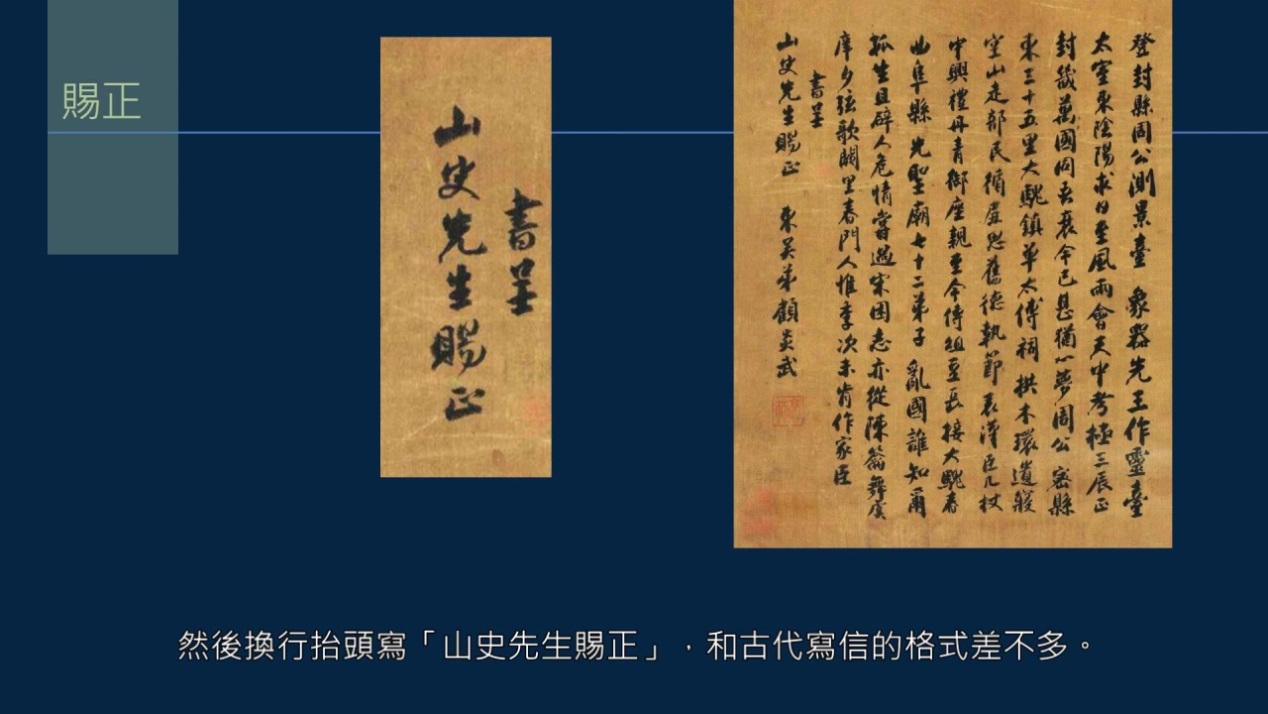 賜正
書呈
山史先生賜正
登封縣周公測景臺 象器先王作靈臺
太室東陰陽求日至風雨會天中考極三辰正
封畿萬國同吾衰今已甚猶心夢周公 密縣
東三十五里大騩鎮卓太傅祠 拱木環遺殿
空山走部民循 思舊德執節表漢臣几杖
中興禮丹青御座親至今傳俎豆長接大騩春
曲阜縣 先聖廟七十二弟子 亂國誰知爾
孤生且辟人危情嘗過宋困志亦從陳籥舞虞
庠夕弦歌闕里春門人惟季次未肯作家臣
書呈
山史先生賜正 東吳弟顧炎武
然後換行抬頭寫「山史先生賜正」，和古代寫信的格式差不多。